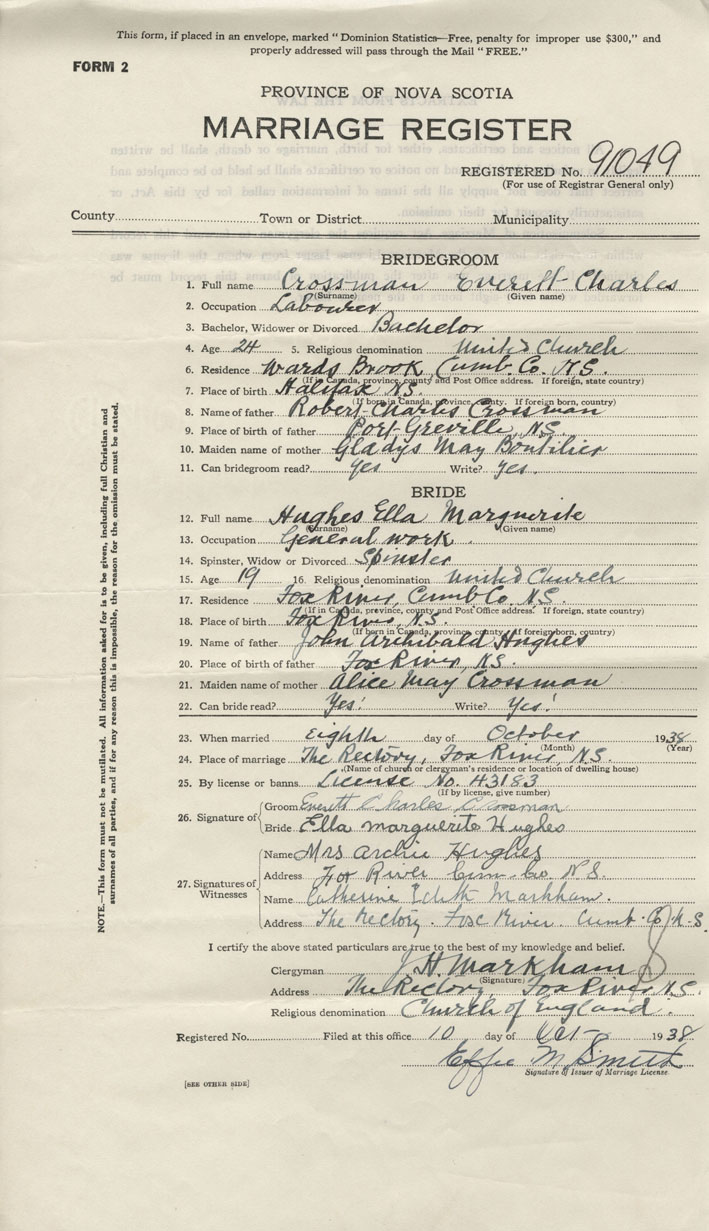 This form, if placed in an envelope, marked "Dominion Statistics—Free, penalty for improper use $300," and
properly addressed will pass through the Mail "FREE."
FORM 2
PROVINCE OF NOVA SCOTIA
MARRIAGE REGISTER
REGISTERED No. 91049
(For use of Registrar General only)
County Town or District Municipality
BRIDEGROOM
1. Full name Crossman Everett Charles
(Surname) (Given name)
2. Occupation Labourer
3. Bachelor, Widower or Divorced Bachelor
4. Age 24 5. Religious denomination United Church
6. Residence Wards Brook Cumb. Co. N.S.
(If in Canada, province, county and Post Office address. If foreign, state country)
7. Place of birth Halifax N.S.
(If born in Canada, province, county. If foreign born, country)
8. Name of father Robert Charles Crossman
9. Place of birth of father Port Greville, N.S.
10. Maiden name of mother Gladys May Boutilier
11. Can bridegroom read? Yes Write? Yes.
BRIDE
12. Full name Hughes Ella Marguerite
(Surname) (Given name)
13. Occupation General work.
14. Spinster, Widow or Divorced Spinster
15. Age 19 16. Religious denomination United Church
17. Residence Fox River, Cumb Co. N.S.
(If in Canada, province, county and Post Office address. If foreign, state country)
18. Place of birth Fox River, N.S.
(If born in Canada, province, county. If foreign born, country)
19. Name of father John Archibald Hughes
20. Place of birth of father Fox River, N.S.
21. Maiden name of mother Alice May Crossman
22. Can bride read? Yes! Write? Yes!
23. When married eighth day of October 1938
(Month) (Year)
24. Place of marriage The Rectory, Fox River, N.S.
(Name of church or clergyman's residence or location of dwelling house)
25. By license or banns License No. 43183
(If by license, give number)
26. Signature of
Groom Everett Charles Crossman
Bride Ella Marguerite Hughes
27. Signatures of Witnesses
Name Mrs Archie Hughes
Address Fox River Cum. Co. N.S.
Name Catherine Edith Markham.
Address The Rectory. Fox River. Cumb. Co. N.S.
I certify the above stated particulars are true to the best of my knowledge and belief.
Clergyman J. H. Markham
(Signature)
Address The Rectory, Fox River, N.S.
Religious denomination Church of England.
Registered No. Filed at this office 10 day of Oct 1938
Effie M. Smith
Signature of Issuer of Marriage License.
[SEE OTHER SIDE]
NOTE.—This form must not be mutilated. All information asked for is to be given, including full Christian and
surnames of all parties, and if for any reason this is impossible, the reason for the omission must be stated.